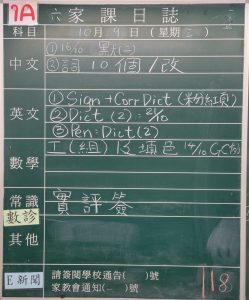 1A 六家課日誌
科目 10月9日(星期三)
中文 ①16/10 默(二)
②詞10個/改
英文 ①Sign+Corr Dict (粉紅頂)
②Dict (2): 21/10
③Pen: Dict (2)
數學 工(組)及填色 14/10
常識 實評簽
數診
其他
E新聞 請簽閱學校通告( )號
家教會通知(- )號
18